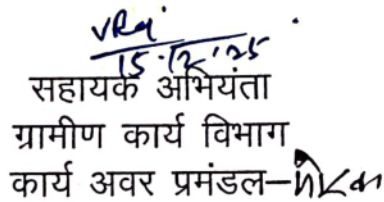 15.12.25
सहायक अभियंता
ग्रामीण कार्य विभाग
कार्य अवर प्रमंडल–